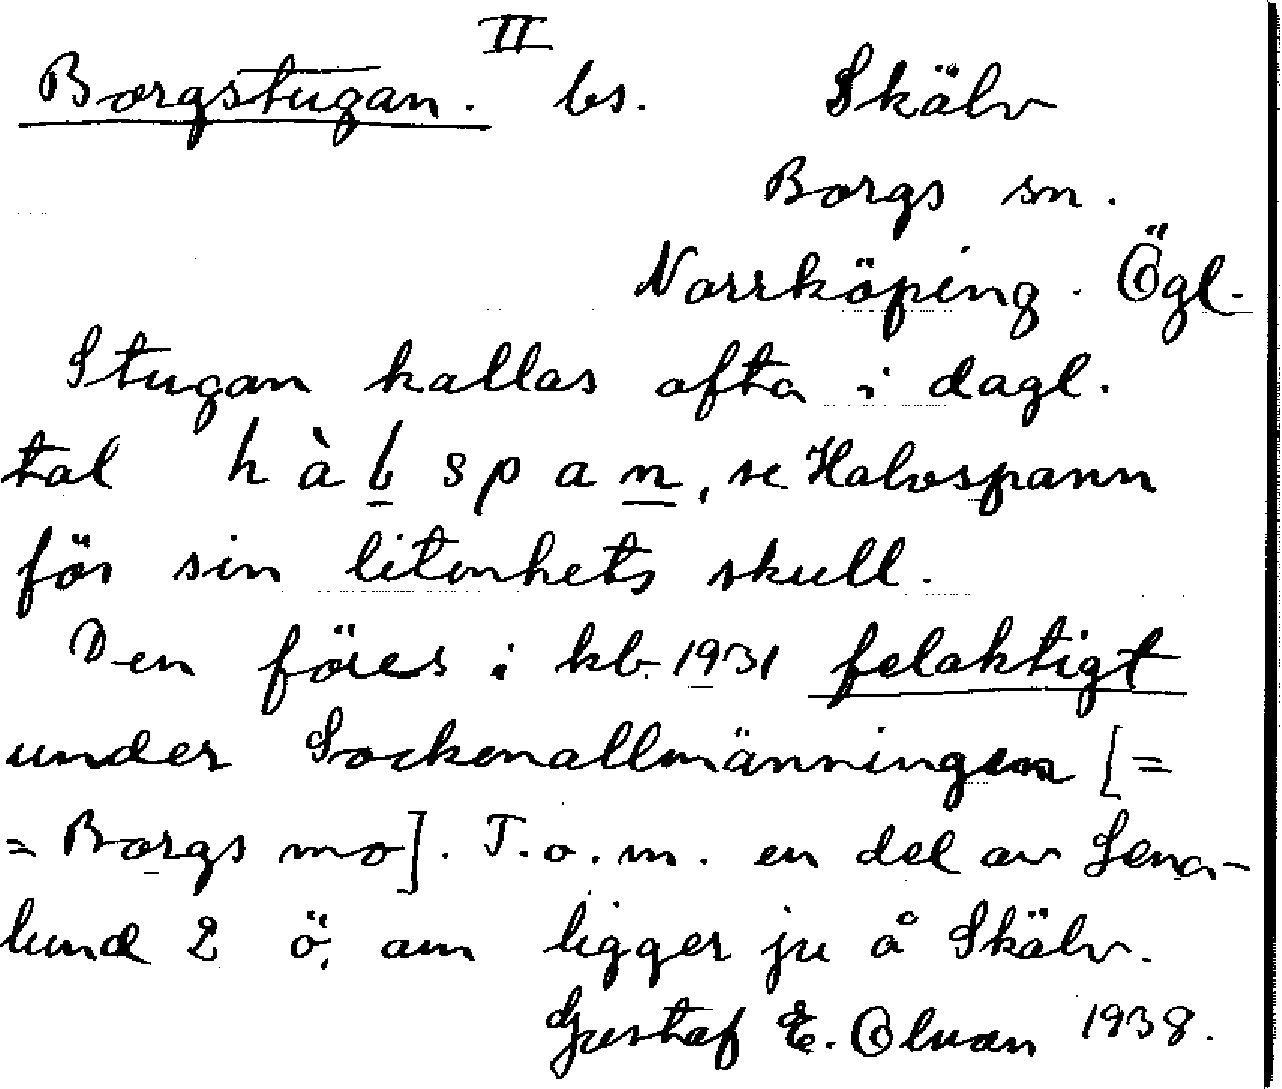 Borgstugan. II bs. Skälv
Borgs sn.
Norrköping. Ögl.
Stugan kallas ofta i dagl.
tal hàbspan, se Halvspann
för sin litenhets skull.
Den föres i kb. 1931 felaktigt
under Sockenallmänningen [=
= Borgs mo]. T.o.m. en del av Lena-
lund 2 ö, am ligger ju å Skälv.
Gustaf E. 1938.